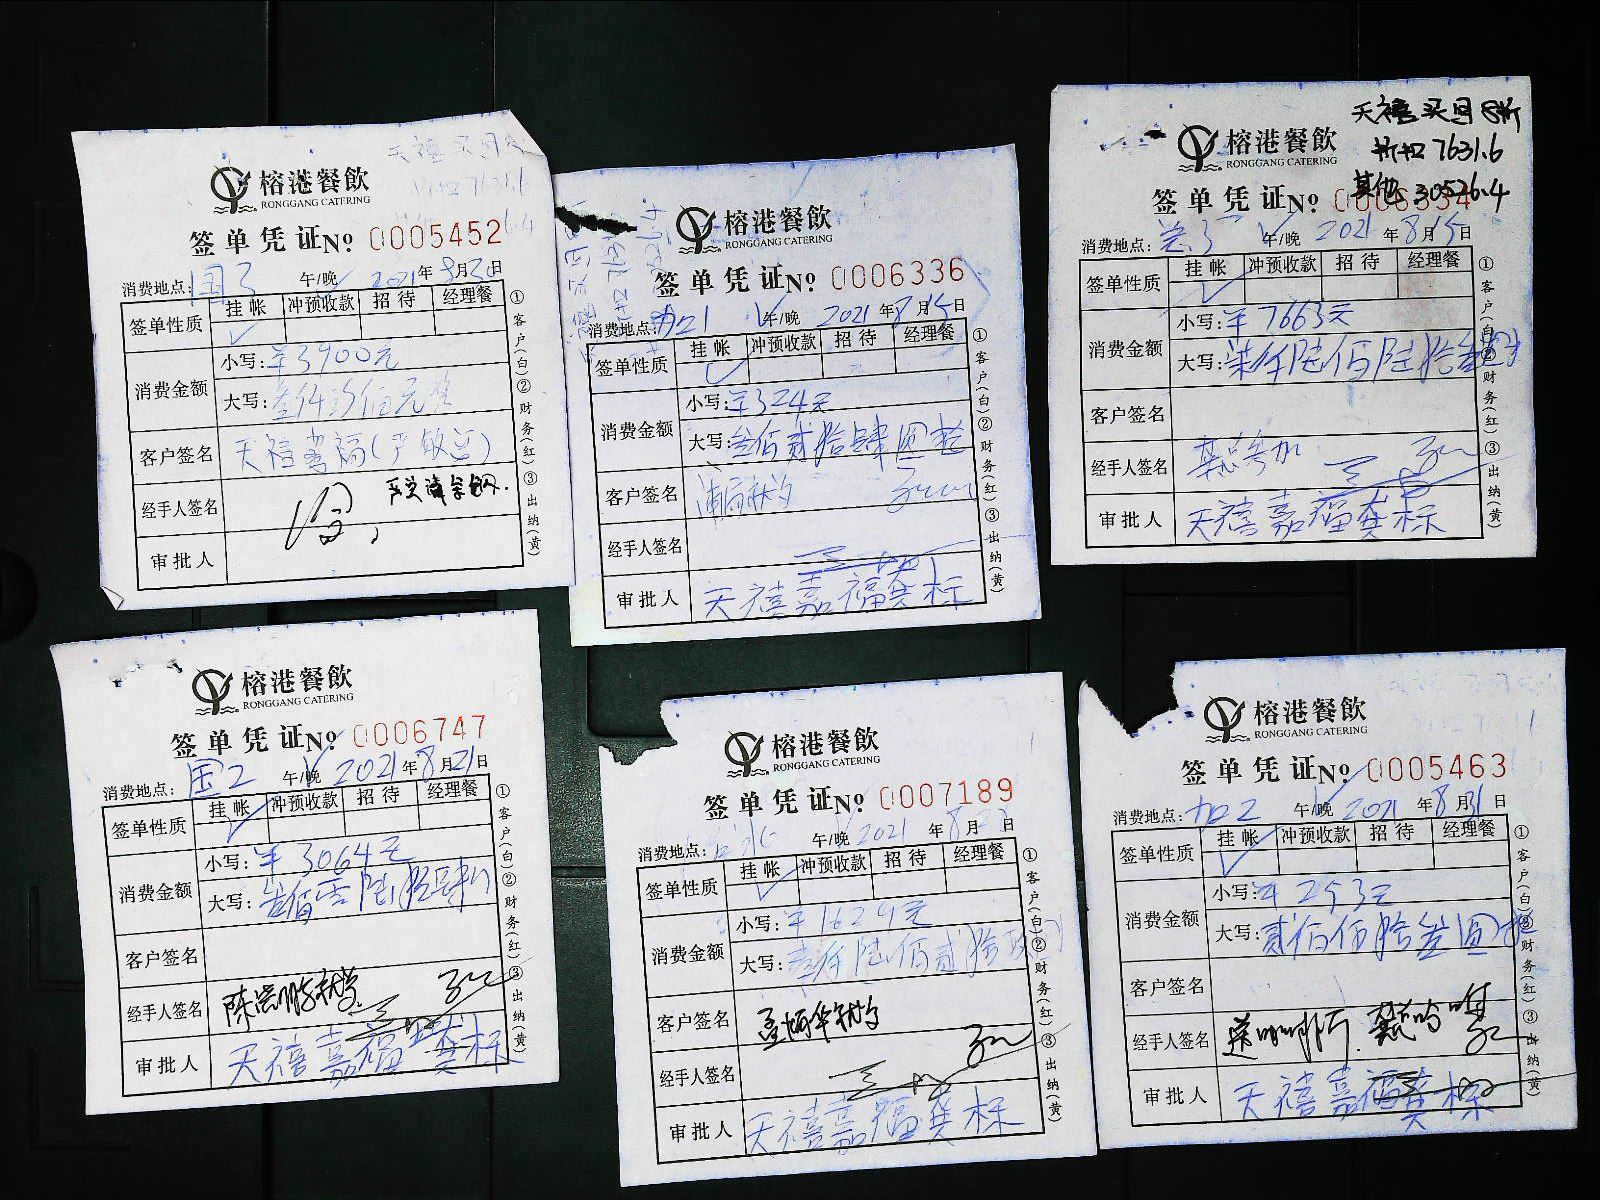 榕港餐飲
RONGGANG CATERING
签单凭证No 0005452
消费地点: 国3 午/晚 2021年8月20日
签单性质 挂帐 冲预收款 招待 经理餐
消费金额 小写: ￥3900元
大写: 叁仟玖佰元整
客户签名 天禧嘉福(严敏总)
经手人签名
审批人
①客户(白)②财务(红)③出纳(黄)
榕港餐飲
RONGGANG CATERING
签单凭证No 0006336
消费地点: 加21 午/晚 2021年8月15日
签单性质 挂帐 冲预收款 招待 经理餐
消费金额 小写: ￥324元
大写: 叁佰贰拾肆圆整
客户签名
经手人签名
审批人 天禧嘉福龚标
①客户(白)②财务(红)③出纳(黄)
天禧买回8折
折扣7631.6
其他 30526.4
榕港餐飲
RONGGANG CATERING
签单凭证No 0006334
消费地点: 午/晚 2021年8月15日
签单性质 挂帐 冲预收款 招待 经理餐
消费金额 小写: ￥7663元
大写: 柒仟陆佰陆拾叁圆
客户签名
经手人签名 龚总参加
审批人 天禧嘉福龚标
①客户(白)②财务(红)③出纳(黄)
榕港餐飲
RONGGANG CATERING
签单凭证No 0006747
消费地点: 国2 午/晚 2021年8月21日
签单性质 挂帐 冲预收款 招待 经理餐
消费金额 小写: ￥3064元
大写:
客户签名
经手人签名
审批人 天禧嘉福龚标
①客户(白)②财务(红)③出纳(黄)
榕港餐飲
RONGGANG CATERING
签单凭证No 0007189
消费地点: 午/晚 2021年8月 日
签单性质 挂帐 冲预收款 招待 经理餐
消费金额 小写: ￥1629元
大写: 壹仟陆佰贰拾玖
客户签名
经手人签名
审批人 天禧嘉福龚标
①客户(白)②财务(红)③出纳(黄)
榕港餐飲
RONGGANG CATERING
签单凭证No 0005463
消费地点: 加22 午/晚 2021年8月31日
签单性质 挂帐 冲预收款 招待 经理餐
消费金额 小写: ￥253元
大写: 贰佰伍拾叁圆整
客户签名
经手人签名
审批人 天禧嘉福龚标
①客户(白)②财务(红)③出纳(黄)